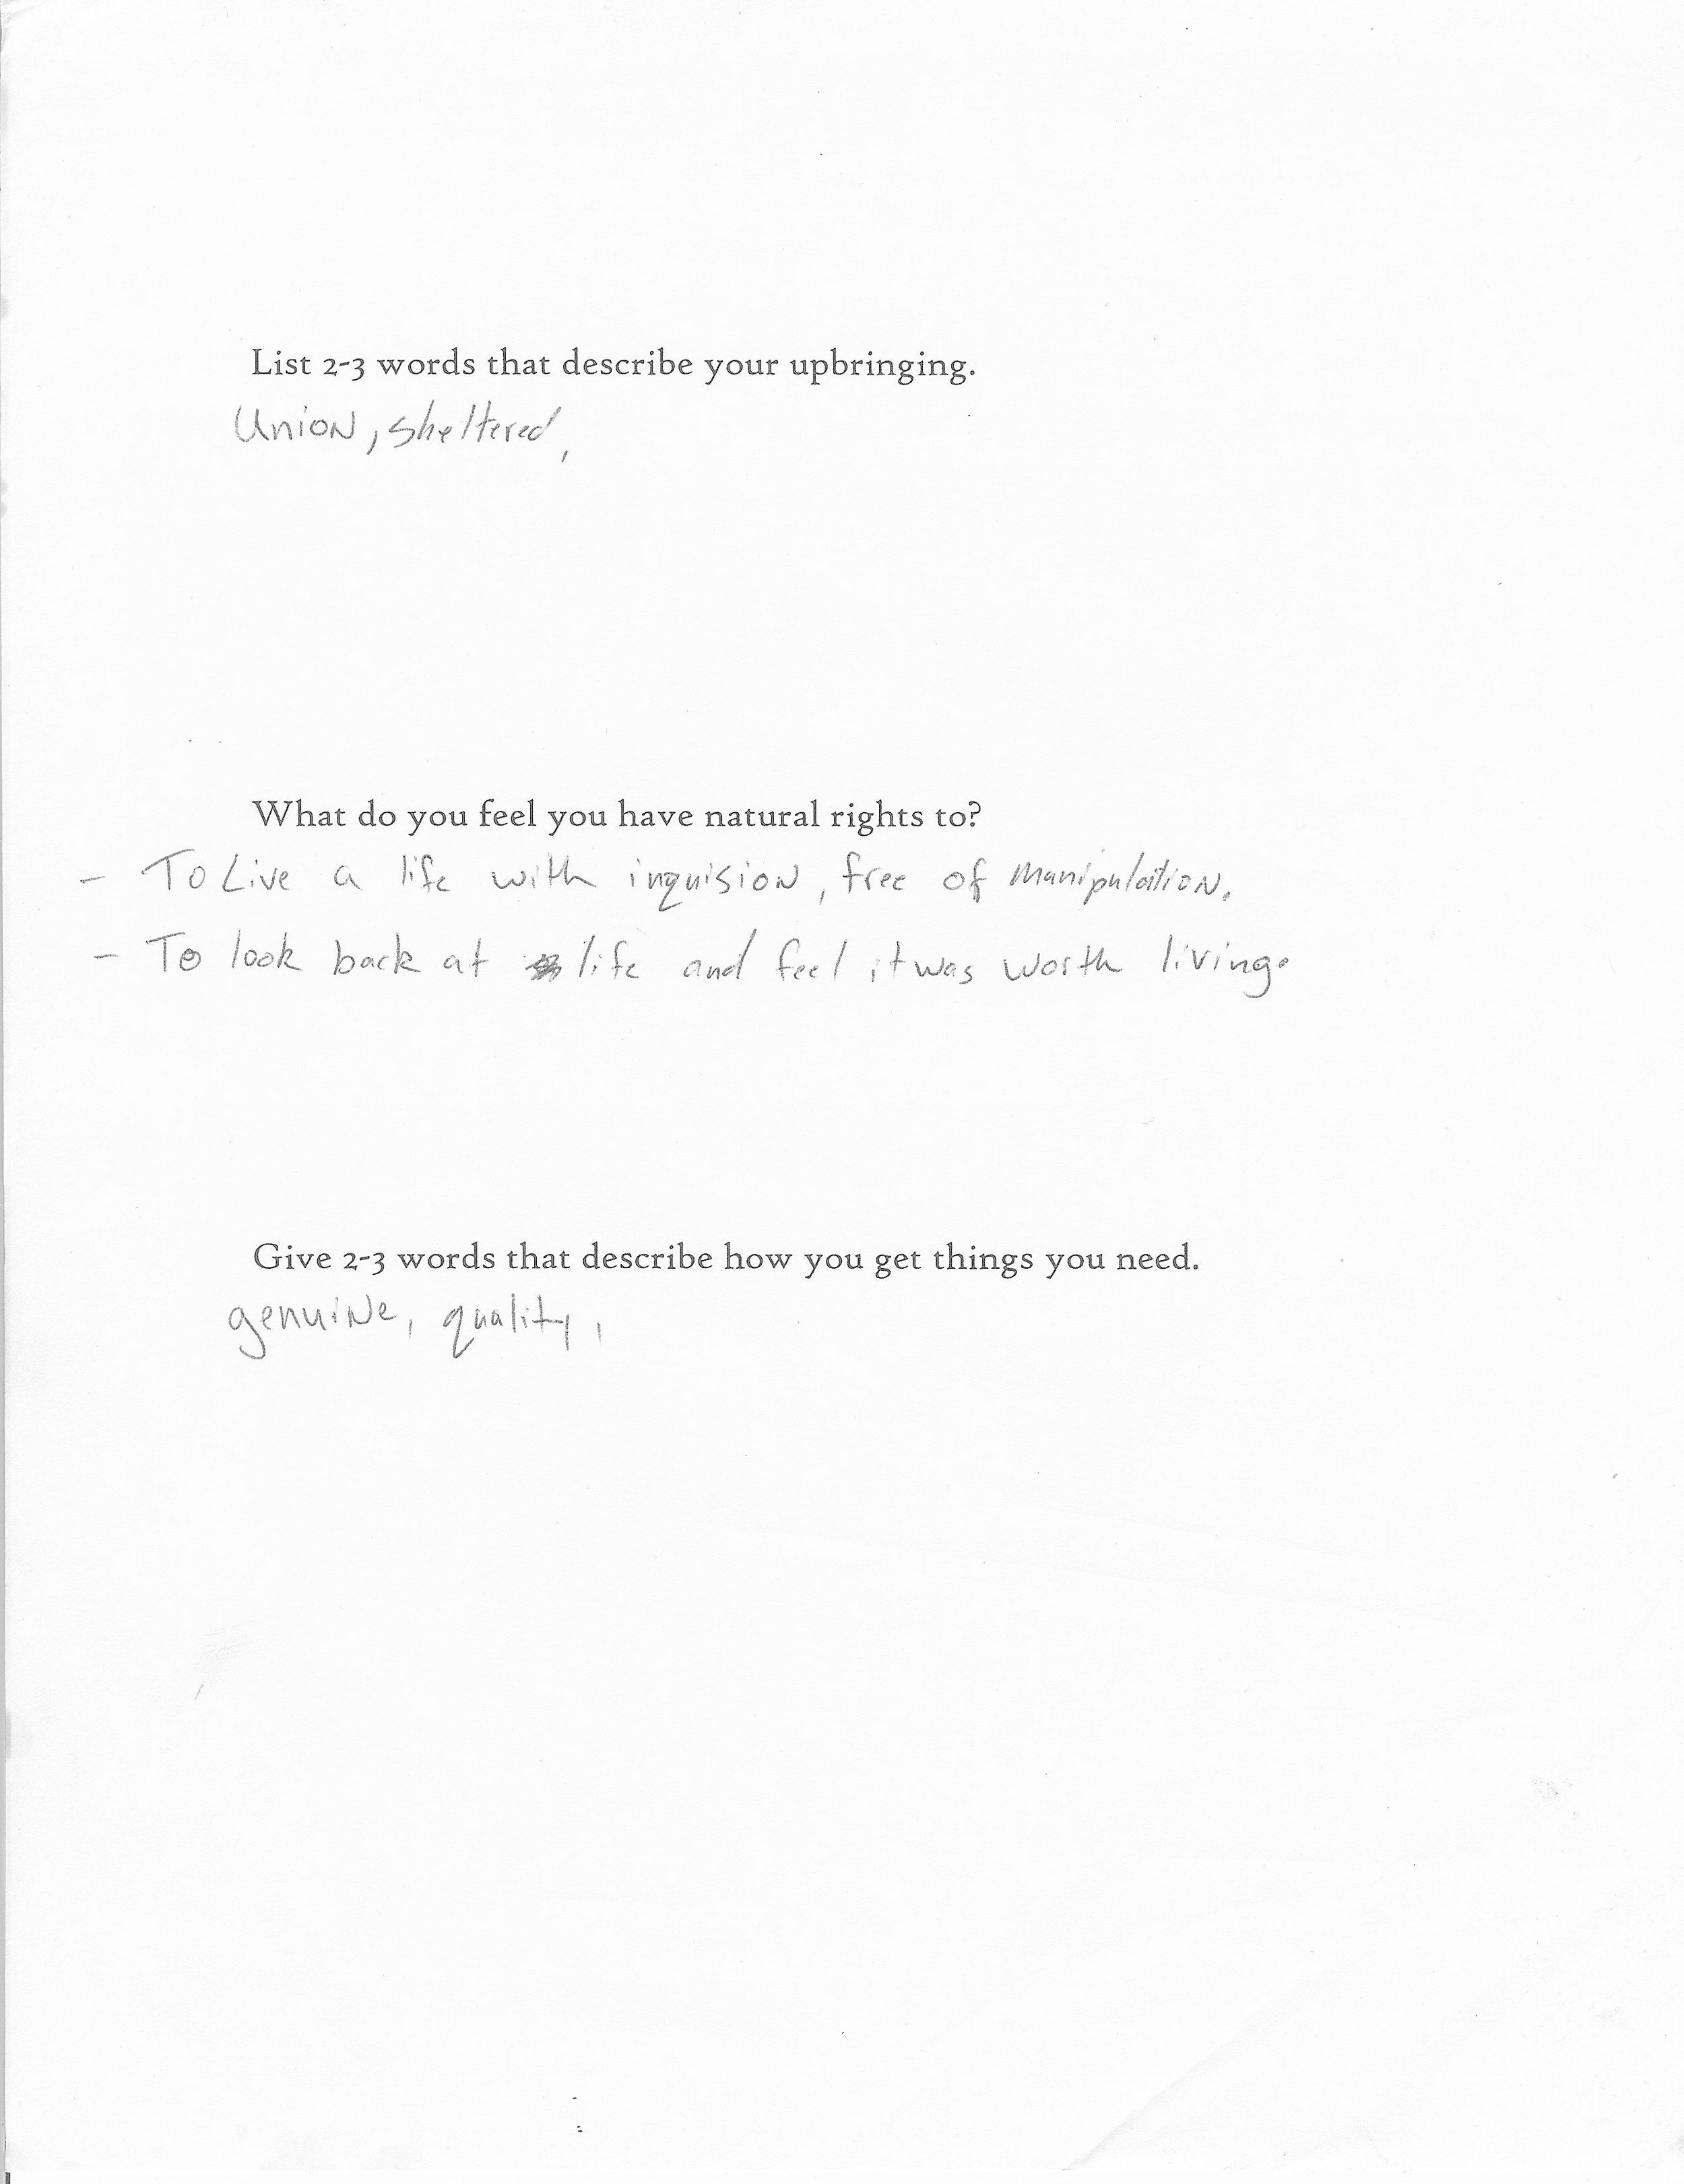 List 2-3 words that describe your upbringing.
Union, sheltered,
What do you feel you have natural rights to?
- To Live a life with inquision, free of manipulation.
- To look back at life and feel it was worth living.
Give 2-3 words that describe how you get things you need.
genuine, quality,